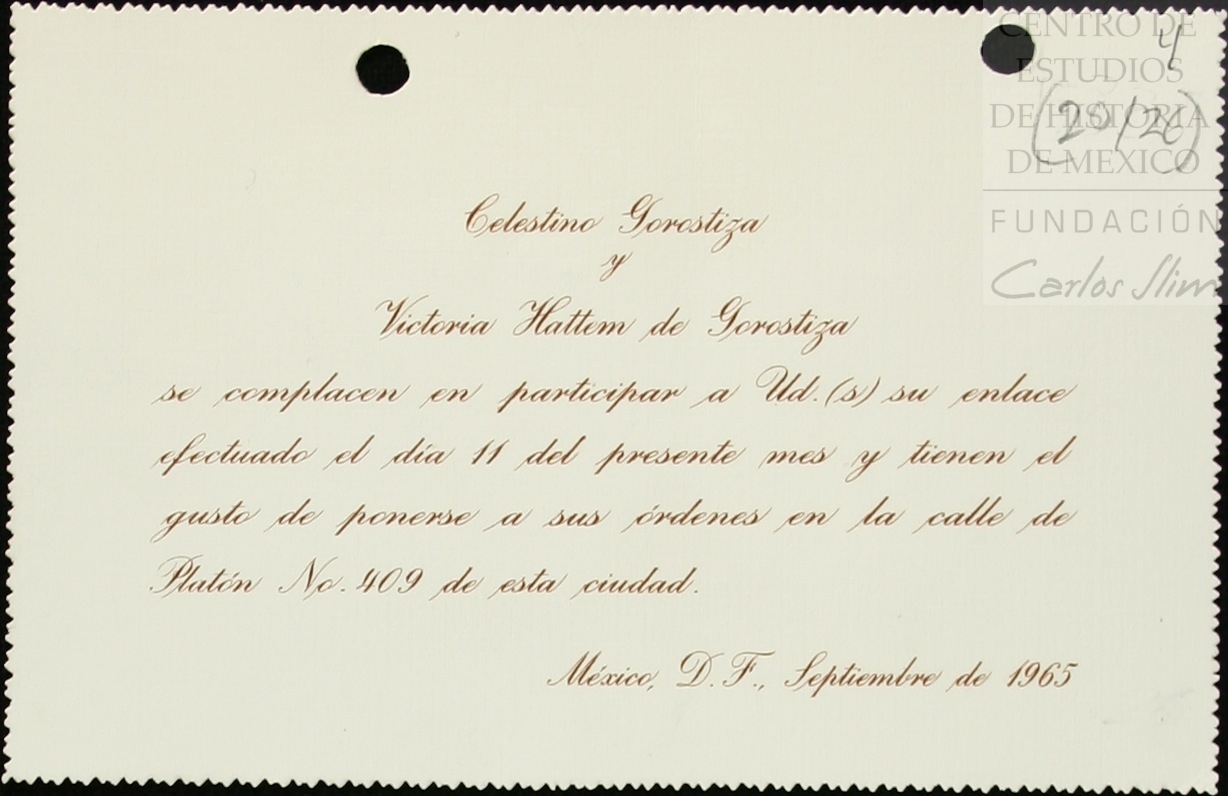 CENTRO DE
ESTUDIOS
DE HISTORIA
DE MEXICO
FUNDACIÓN
Carlos Slim
4
(20/26)
Celestino Gorostiza
y
Victoria Hattem de Gorostiza
se complacen en participar a Ud.(s) su enlace
efectuado el día 11 del presente mes y tienen el
gusto de ponerse a sus órdenes en la calle de
Platón No. 409 de esta ciudad.
México, D. F., Septiembre de 1965